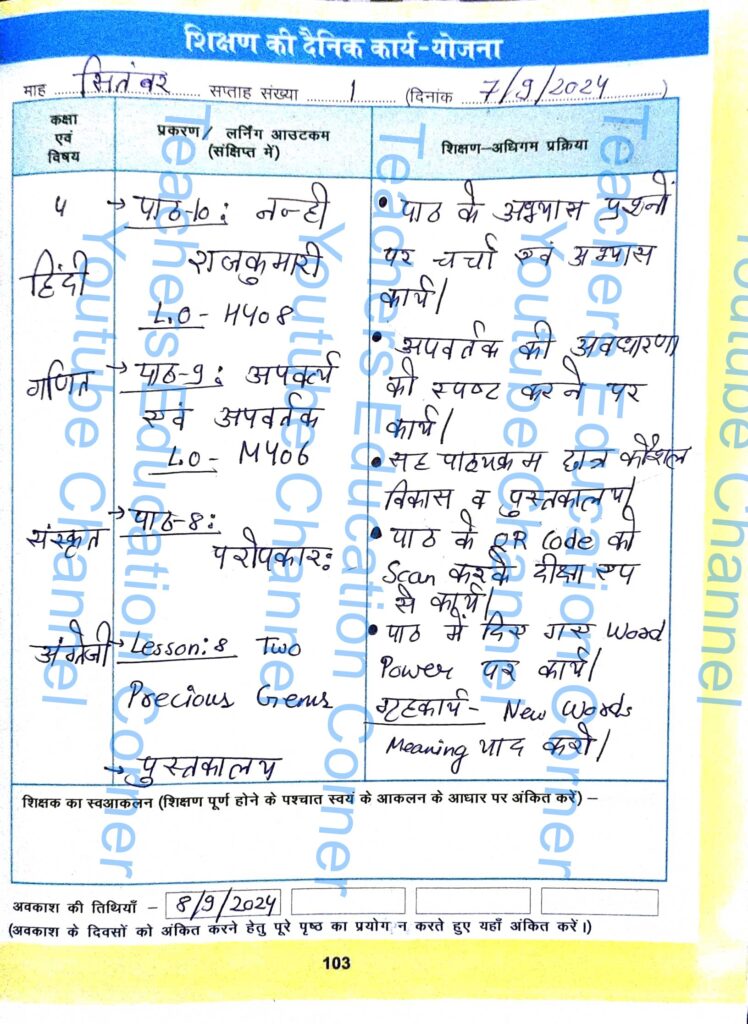 शिक्षण की दैनिक कार्य-योजना
माह सितंबर सप्ताह संख्या 1 (दिनांक 7/9/2024)
कक्षा एवं विषय
प्रकरण / लर्निंग आउटकम (संक्षिप्त में)
शिक्षण-अधिगम प्रक्रिया
5
हिंदी
→ पाठ-10: नन्ही
राजकुमारी
L.O - H408
• पाठ के अभ्यास प्रश्नों
पर चर्चा एवं अभ्यास
कार्य।
गणित
→ पाठ-9: अपवर्त्य
एवं अपवर्तक
L.O - M406
• अपवर्तक की अवधारणा
को स्पष्ट करने पर
कार्य।
• सह पाठ्यक्रम छात्र कौशल
विकास व पुस्तकालय।
संस्कृत
→ पाठ-8:
परोपकारः
• पाठ के QR Code को
Scan करके दीक्षा एप
से कार्य।
अंग्रेजी
→ Lesson:8 Two
Precious Gems
• पाठ में दिए गए Word
Power पर कार्य।
गृहकार्य - New Words
Meaning याद करो।
→ पुस्तकालय
शिक्षक का स्वआकलन (शिक्षण पूर्ण होने के पश्चात स्वयं के आकलन के आधार पर अंकित करें) –
अवकाश की तिथियाँ – 8/9/2024
(अवकाश के दिवसों को अंकित करने हेतु पूरे पृष्ठ का प्रयोग न करते हुए यहाँ अंकित करें।)
103
Teachers Education Corner
Youtube Channel
Teachers Education Corner
Youtube Channel
Teachers Education Corner
Youtube Channel